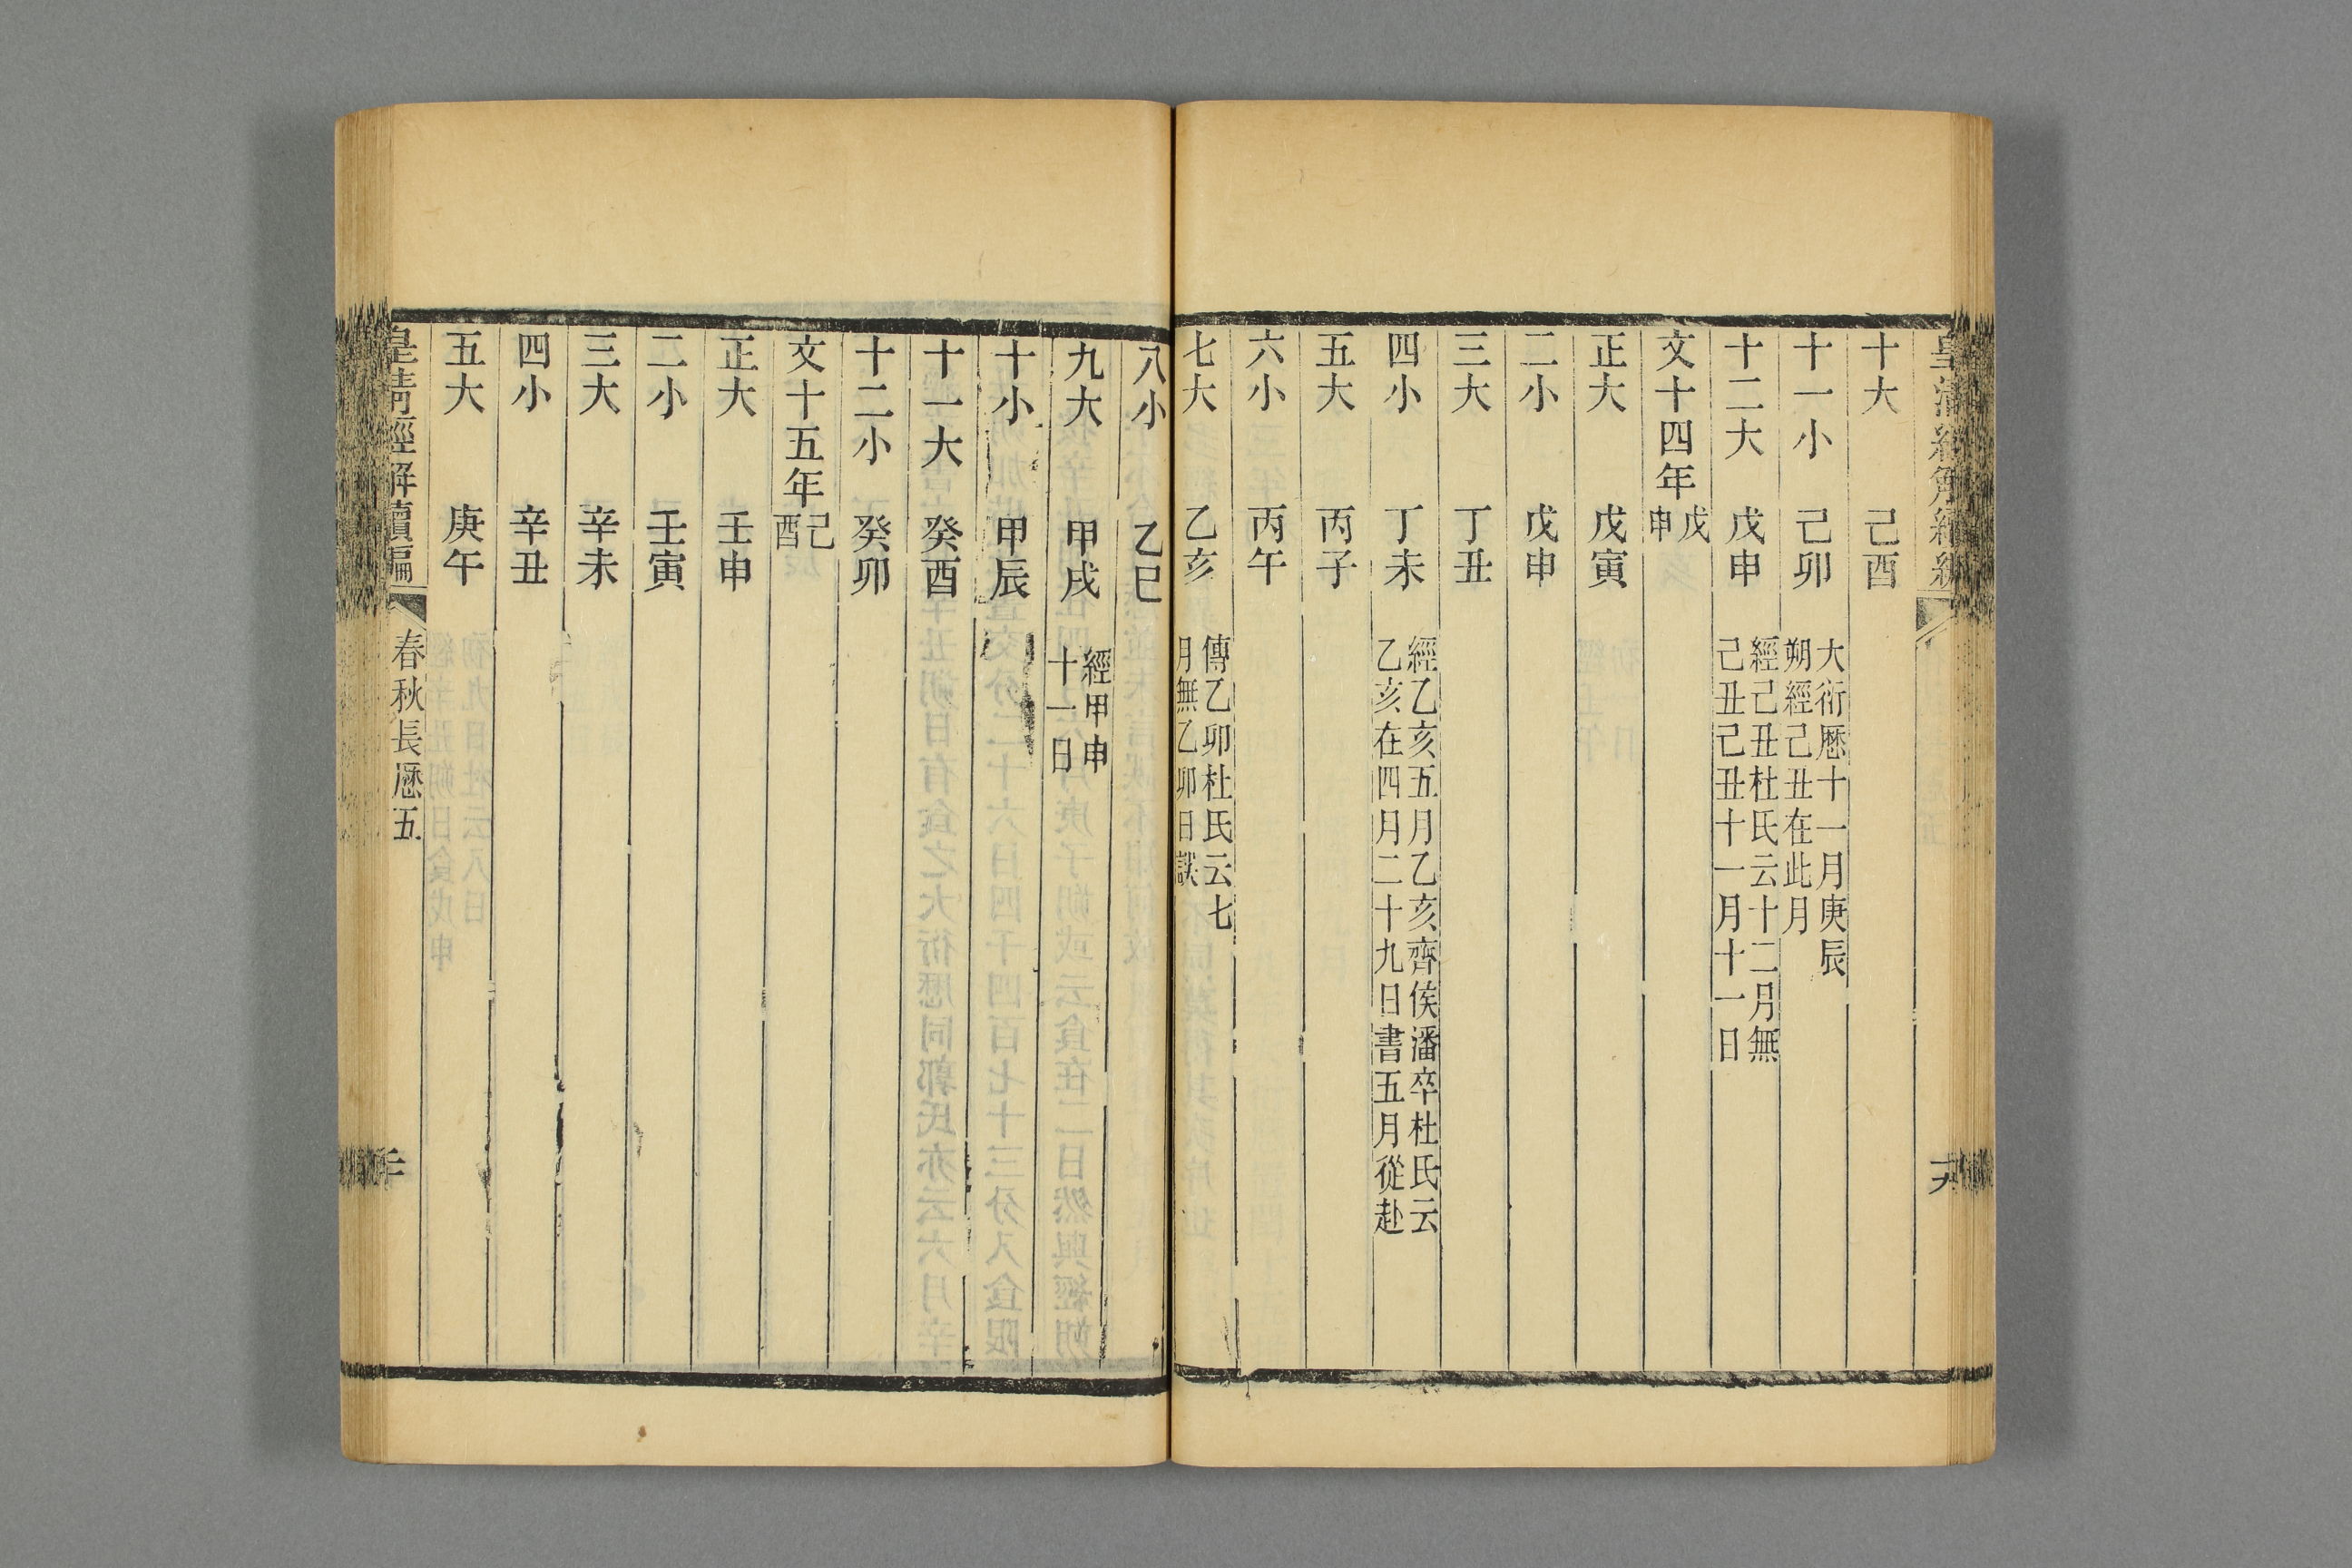 十大　己酉
十一小　己卯　大衍厯十一月庚辰
朔經己丑在此月
十二大　戊申　經己丑杜氏云十二月無
己丑己丑十一月十一日
文十四年　戊申
正大　戊寅
二小　戊申
三大　丁丑
四小　丁未　經乙亥五月乙亥齊侯潘卒杜氏云
乙亥在四月二十九日書五月從赴
五大　丙子
六小　丙午
七大　乙亥　傳乙卯杜氏云七
月無乙卯日誤
八小　乙巳
九大　甲戌　經甲申
十一日
十小　甲辰
十一大　癸酉
十二小　癸卯
文十五年　己酉
正大　壬申
二小　壬寅
三大　辛未
四小　辛丑
五大　庚午
皇清經解續編　春秋長厯五